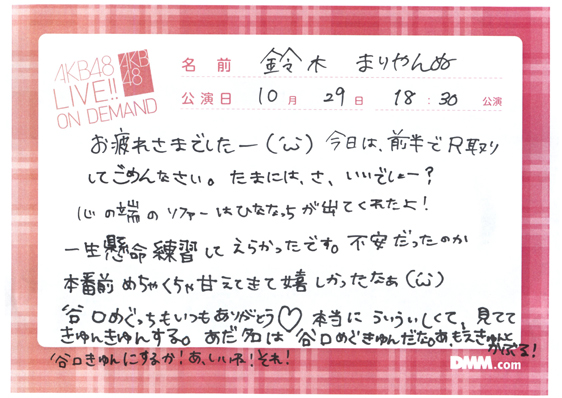 AKB48
LIVE!!
ON DEMAND
AKB
48
名前 鈴木 まりやんぬ
公演日 10月 29日 18:30 公演
お疲れさまでしたー('ω') 今日は、前半で尺取り
してごめんなさい。たまには、さ、いいでしょー?
心の端のソファーはひななっちが出てくれたよ!
一生懸命練習してえらかったです。不安だったのか
本番前めちゃくちゃ甘えてきて嬉しかったなぁ('ω')
谷口めぐっちもいつもありがとう♡ 本当にういういしくて、見てて
きゅんきゅんする。あだ名は谷口めぎゅんだな。あ、もえきゅんと
かぶる!
谷口きゅんにするか!あ、いいね!それ!
DMM.com